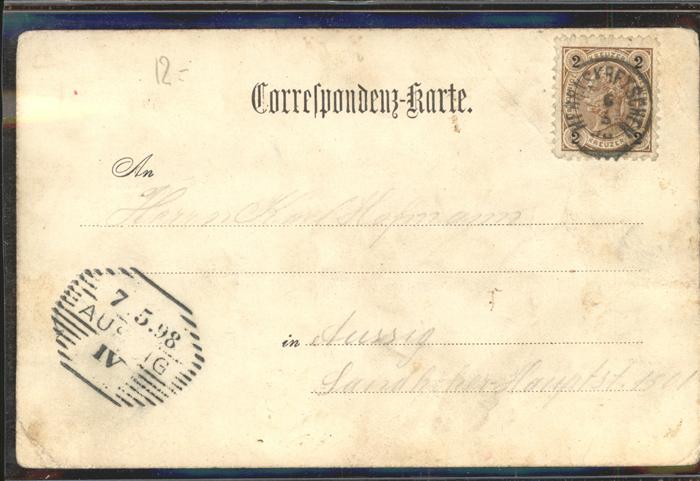 12.-
Correspondenz-Karte.
2 KREUZER 2
HERRNSKRETSCHEN
6
5
2 KREUZER 2
An
Herrn Karl Hofmann
7.5.98
AUSSIG
IV
in Aussig
Hauptst.